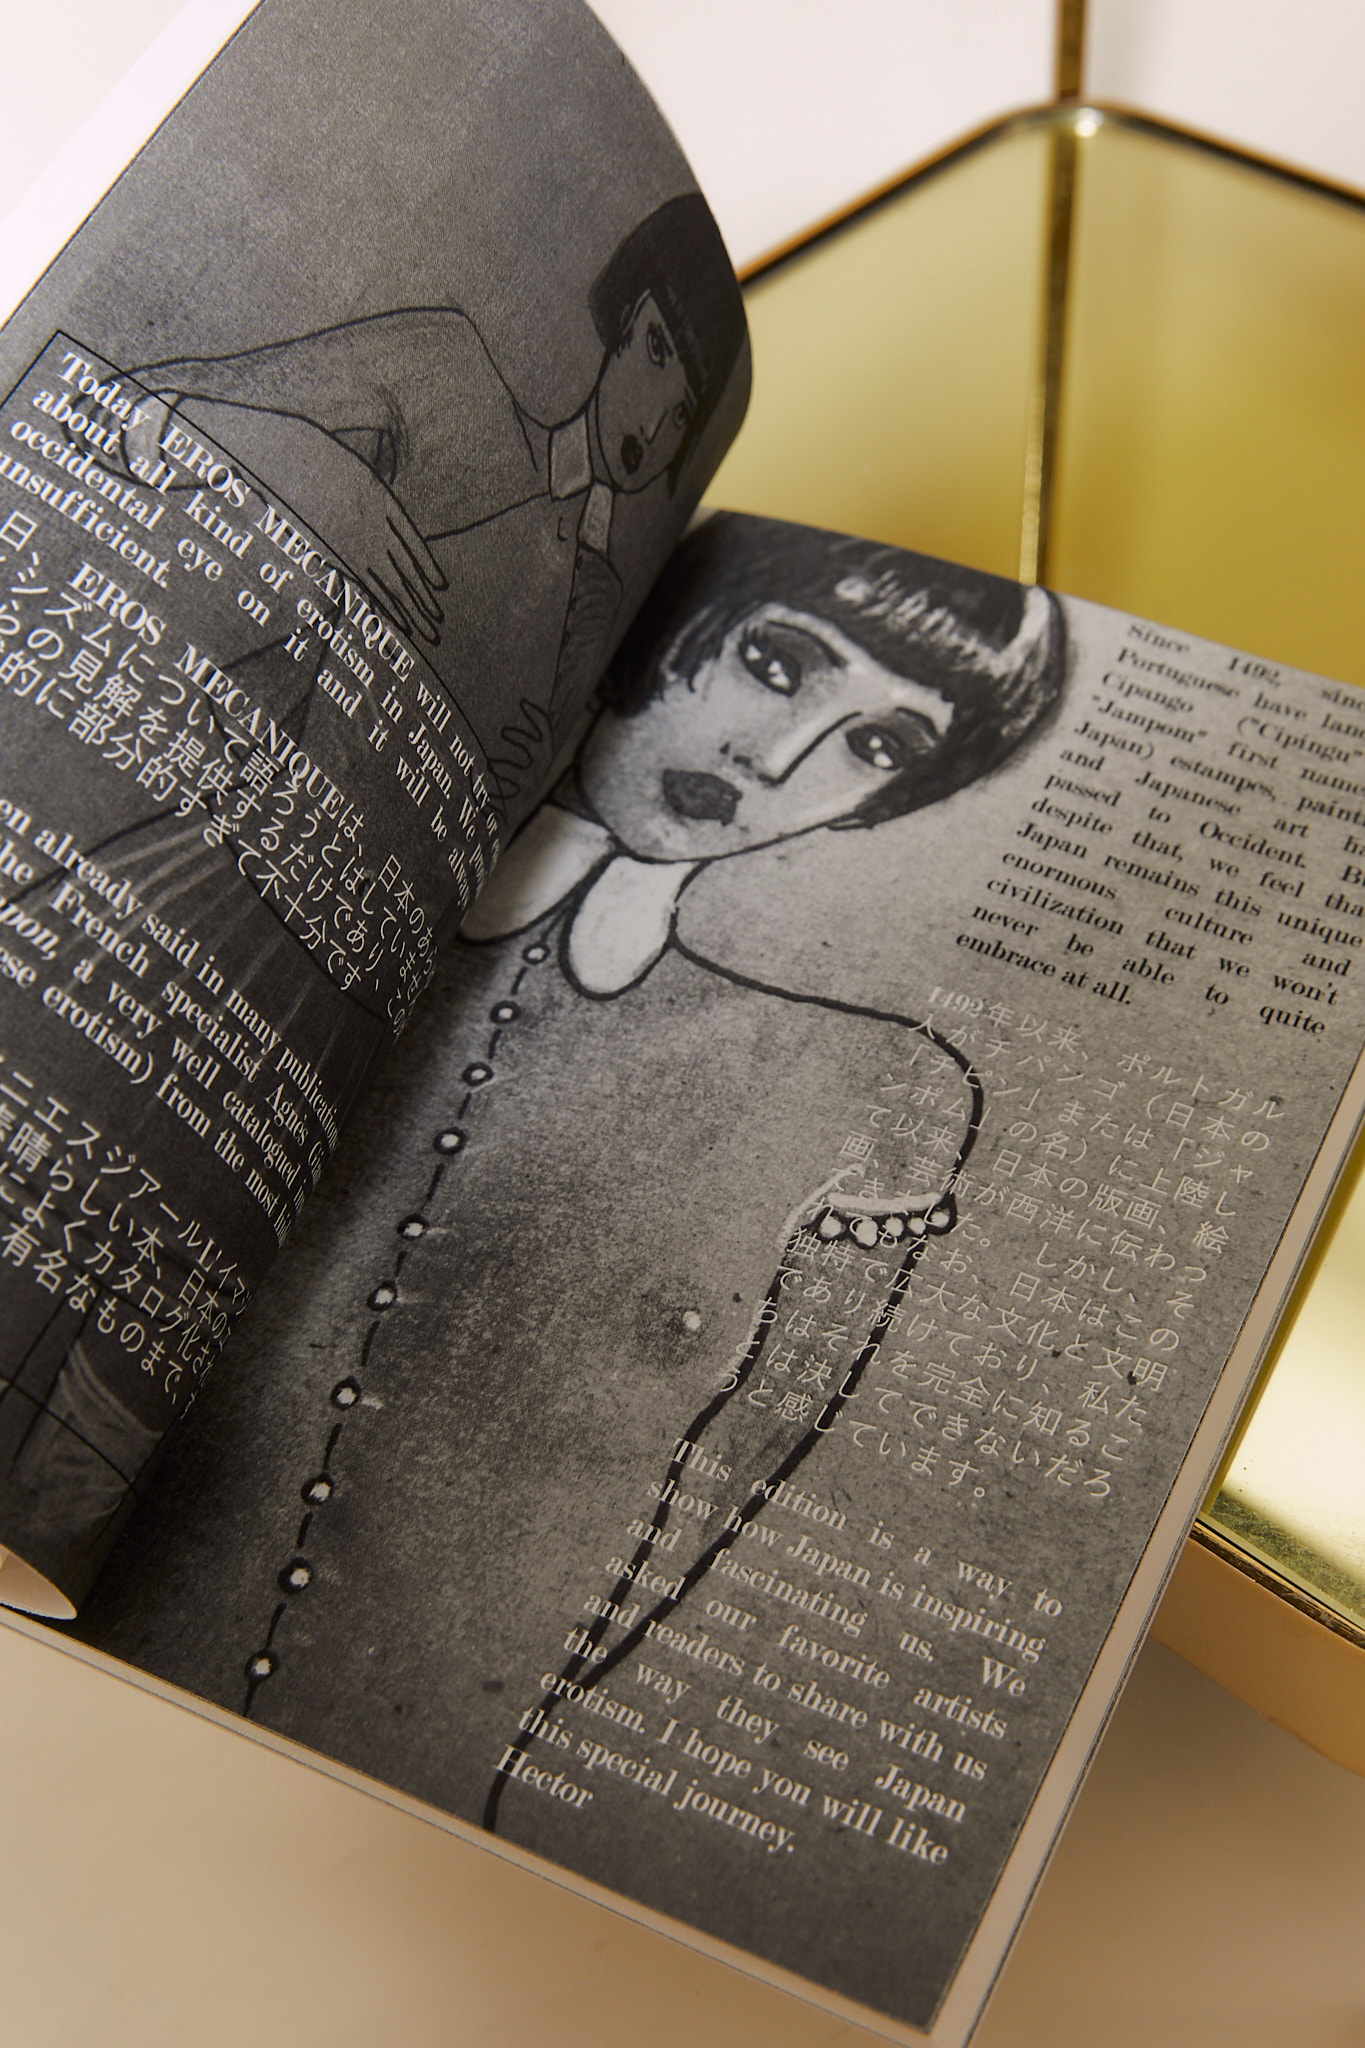 Today EROS MECANIQUE will not try
about all kind of erotism in Japan. We
occidental eye on it and it will be
unsufficient.
EROS MECANIQUEは、日本のあ
シズムについて語ろうとはしていま
の見解を提供するだけであり、
的に部分的すぎて不十分です
en already said in many
the French specialist Agnès
pon, a very well catalogued
ese erotism) from the most
ニエスジアール
素晴らしい本、日本の
によくカタログ化
有名なものまで、
Since 1492,
Portuguese have
Cipango ("Cipingu"
"Jampom" first
Japan) estampes,
and Japanese art
passed to Occident.
despite that, we feel
Japan remains this unique
enormous culture and
civilization that we won't
never be able to quite
embrace at all.
1492年以来、ポルトガル
人がチパンゴ（日本の
「チピン」または「ジャ
ンポム」の名）に上陸し
て以来、日本の版画、絵
画、芸術が西洋に伝わっ
てきました。しかし、そ
れでもなお、日本はこの
独特で広大な文化と文明
であり続けており、私た
ちはそれを完全に知るこ
とは決してできないだろ
うと感じています。
This edition is a way to
show how Japan is inspiring
and fascinating us. We
asked our favorite artists
and readers to share with us
the way they see Japan
erotism. I hope you will like
this special journey.
Hector